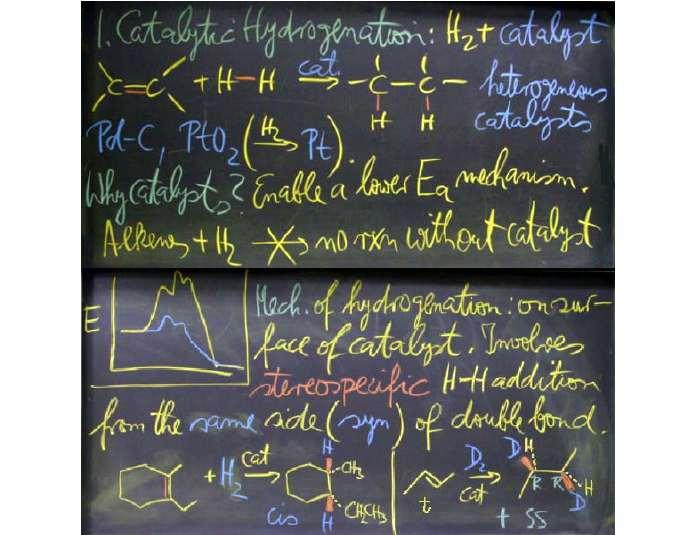 1. Catalytic Hydrogenation: H2 + catalyst
C=C + H-H cat. -C-C- heterogeneous
H H catalysts
Pd-C, PtO2 (H2 → Pt).
Why catalysts? Enable a lower Ea mechanism.
Alkenes + H2 → no rxn without catalyst
E
Mech. of hydrogenation: on sur-
face of catalyst. Involves
stereospecific H-H addition
from the same side (syn) of double bond.
+ H2 cat H CH3 CH2CH3 H cis
t D2 cat D H R R H D
+ SS